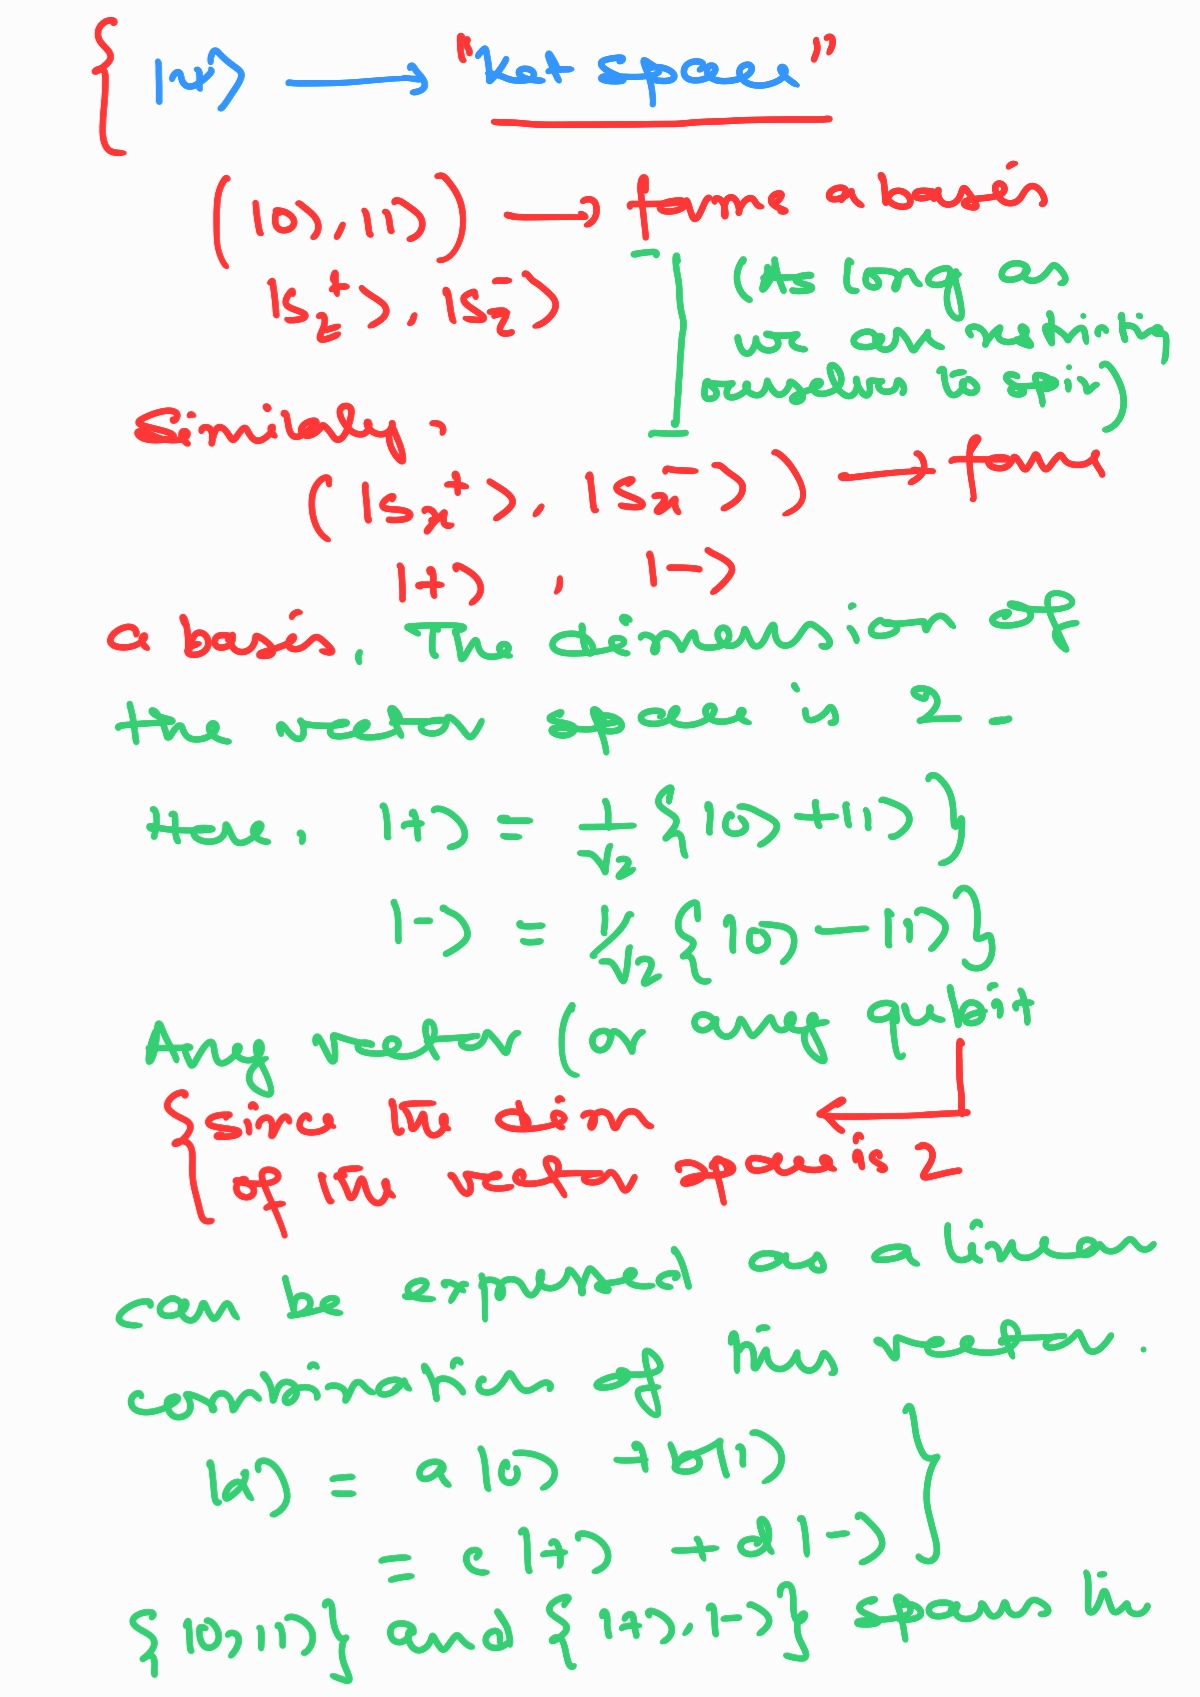 { |ψ⟩ ⟶ "Ket space"
(|0⟩, |1⟩) ⟶ forms a basis
|S_z^+⟩, |S_z^-⟩
[(As long as
we are restricting
ourselves to spin)
Similarly,
(|S_x^+⟩, |S_x^-⟩) ⟶ forms
|+⟩ , |-⟩
a basis. The dimension of
the vector space is 2.
Here, |+⟩ = 1/√2 {|0⟩ + |1⟩}
|-⟩ = 1/√2 {|0⟩ - |1⟩}
Any vector (or any qubit
{ since the dim
of the vector space is 2
can be expressed as a linear
combination of this vector.
|α⟩ = a|0⟩ + b|1⟩ }
= c|+⟩ + d|-⟩
{|0⟩, |1⟩} and {|+⟩, |-⟩} spans the